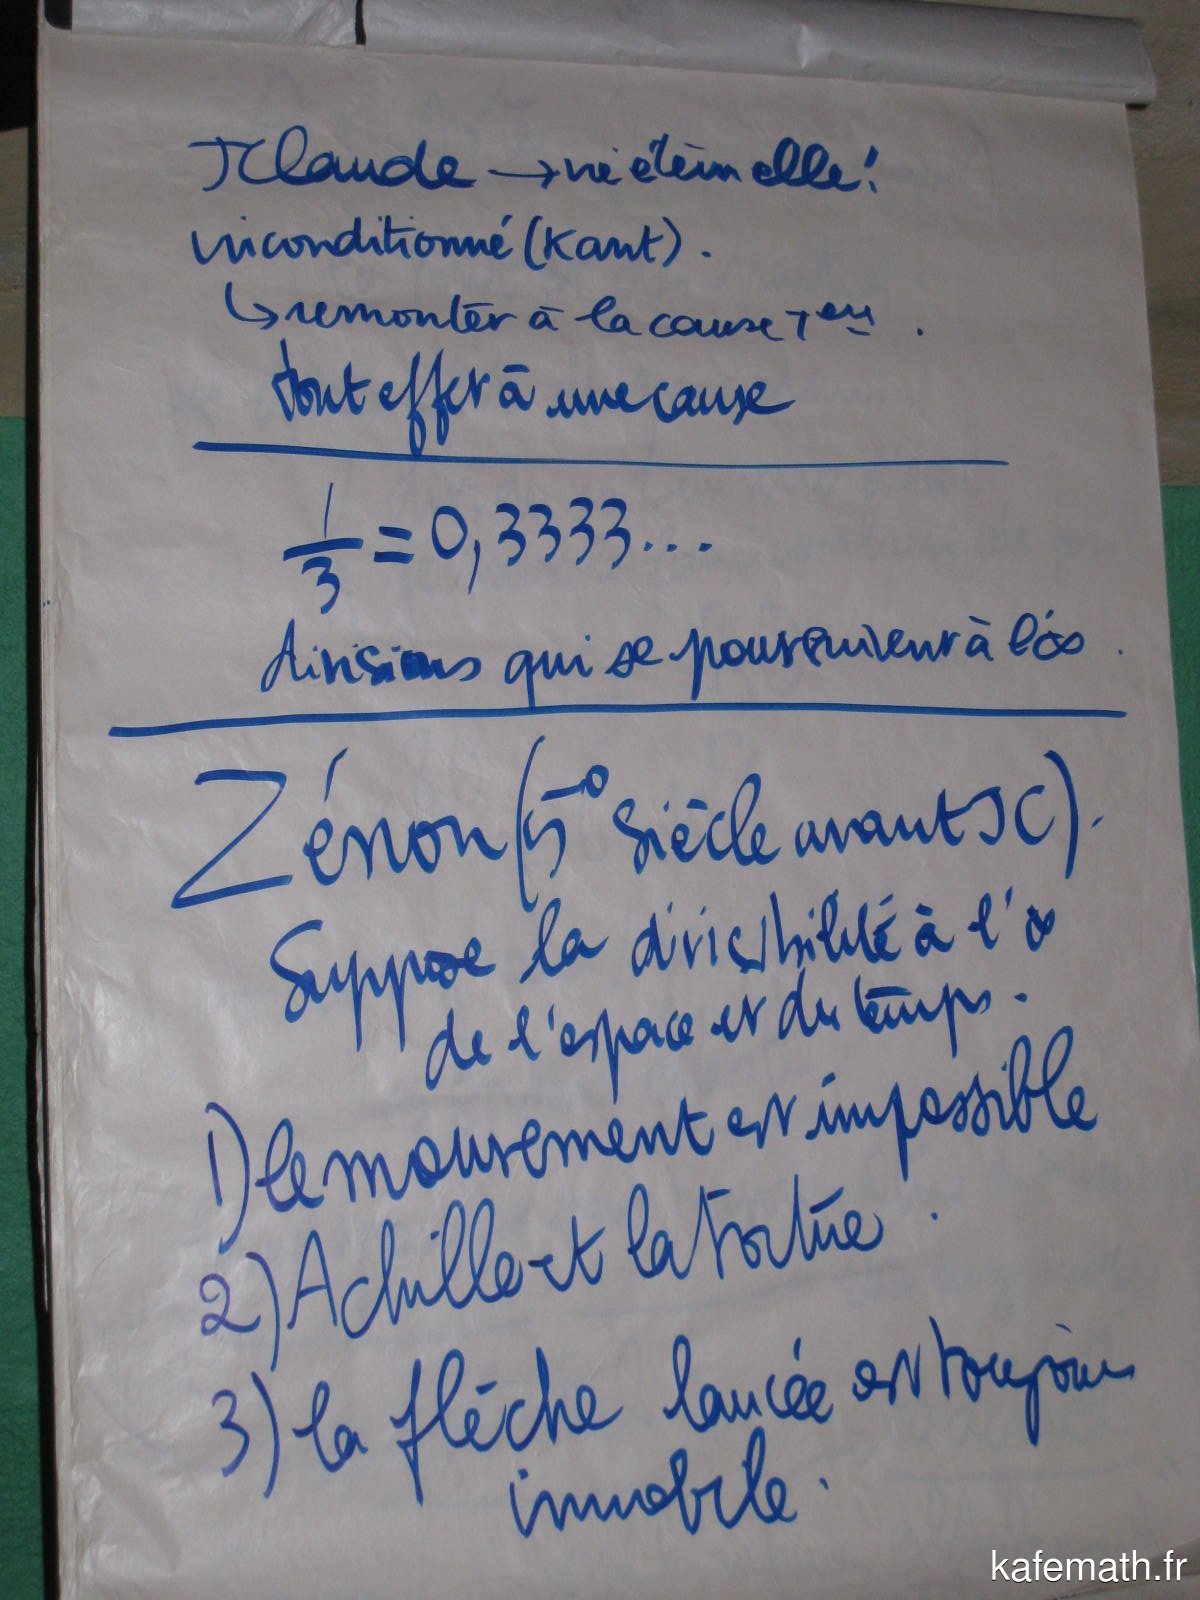 JClaude → vie éternelle !
inconditionné (Kant).
↳ remonter à la cause 1ère.
tout effet à une cause
1/3 = 0,3333...
divisions qui se poursuivent à l'∞.
Zénon (5° siècle avant JC).
Suppose la divisibilité à l'∞
de l'espace et du temps.
1) le mouvement est impossible
2) Achille et la tortue.
3) la flèche lancée est toujours
immobile.
kafemath.fr